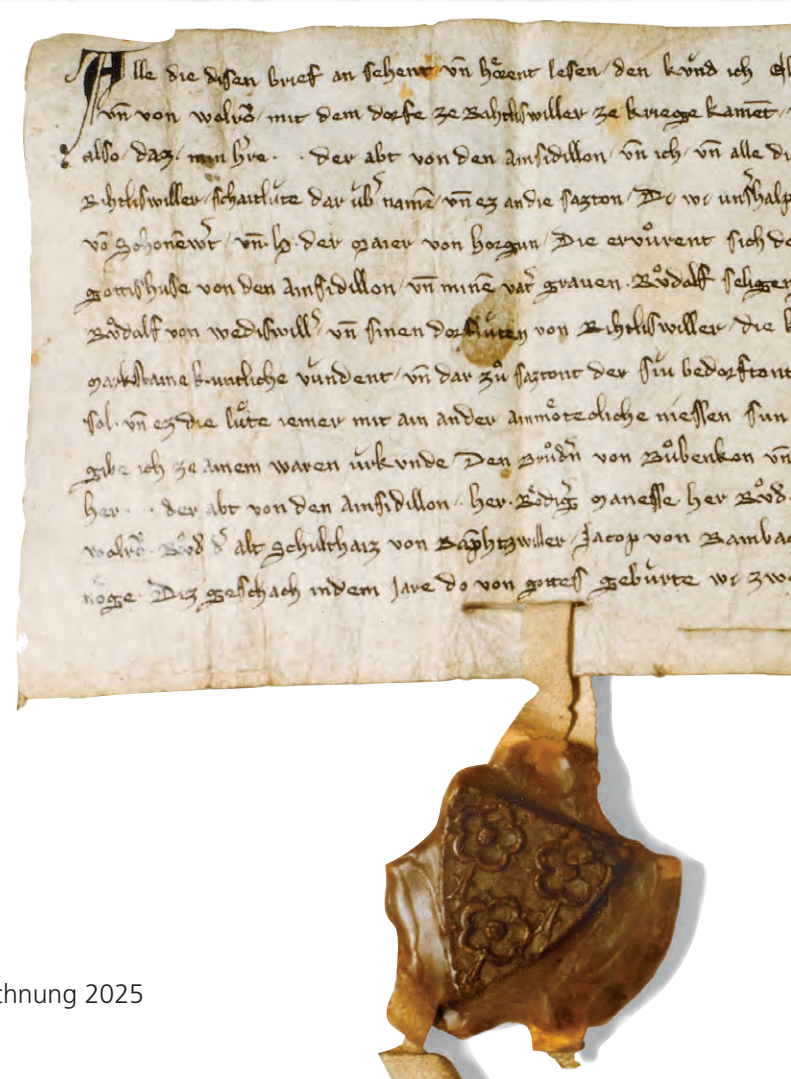 Alle die disen brief an sehent vn̄ hoͤrent lesen / den kvͥnd ich
vn̄ von wolrō / mit dem dorfe ze Bahtliswiller ze kriege kament /
also / daz / min h̄re . . der abt von den Ainsidillon / vn̄ ich / vn̄ alle di
Rihtliswiller / schaitlùte dar úb̄ namē / vn̄ ez an die sazton /
vō Schonēw̄t / vn̄ . h̄ . der Maier von horgun / Die ervůrent sich
gottishuse von den Ainsidillon / vn̄ minē vat̄ grauen . Růdolf seligen
Růdolf von wediswill̄ / vn̄ sinen dorflúten von Rihtliswiller / die
Markstaine kuntliche vundent / vn̄ dar zů saztont der siu bedorftont
sol . vn̄ ez die lúte iemer mit ain ander ainmoͤtecliche niessen sun
gibe ich ze ainem waren úrkvnde / Den Brůdn̄ von Bůbenkon vn̄
her . . der abt von den Ainsidillon . her . Růdiḡ Manesse . her Růd .
wolrō . Růd d̄ alt Schulthaiz von / Jacop von
Diz geschach indem Jare do von gottes gebúrte
chnung 2025